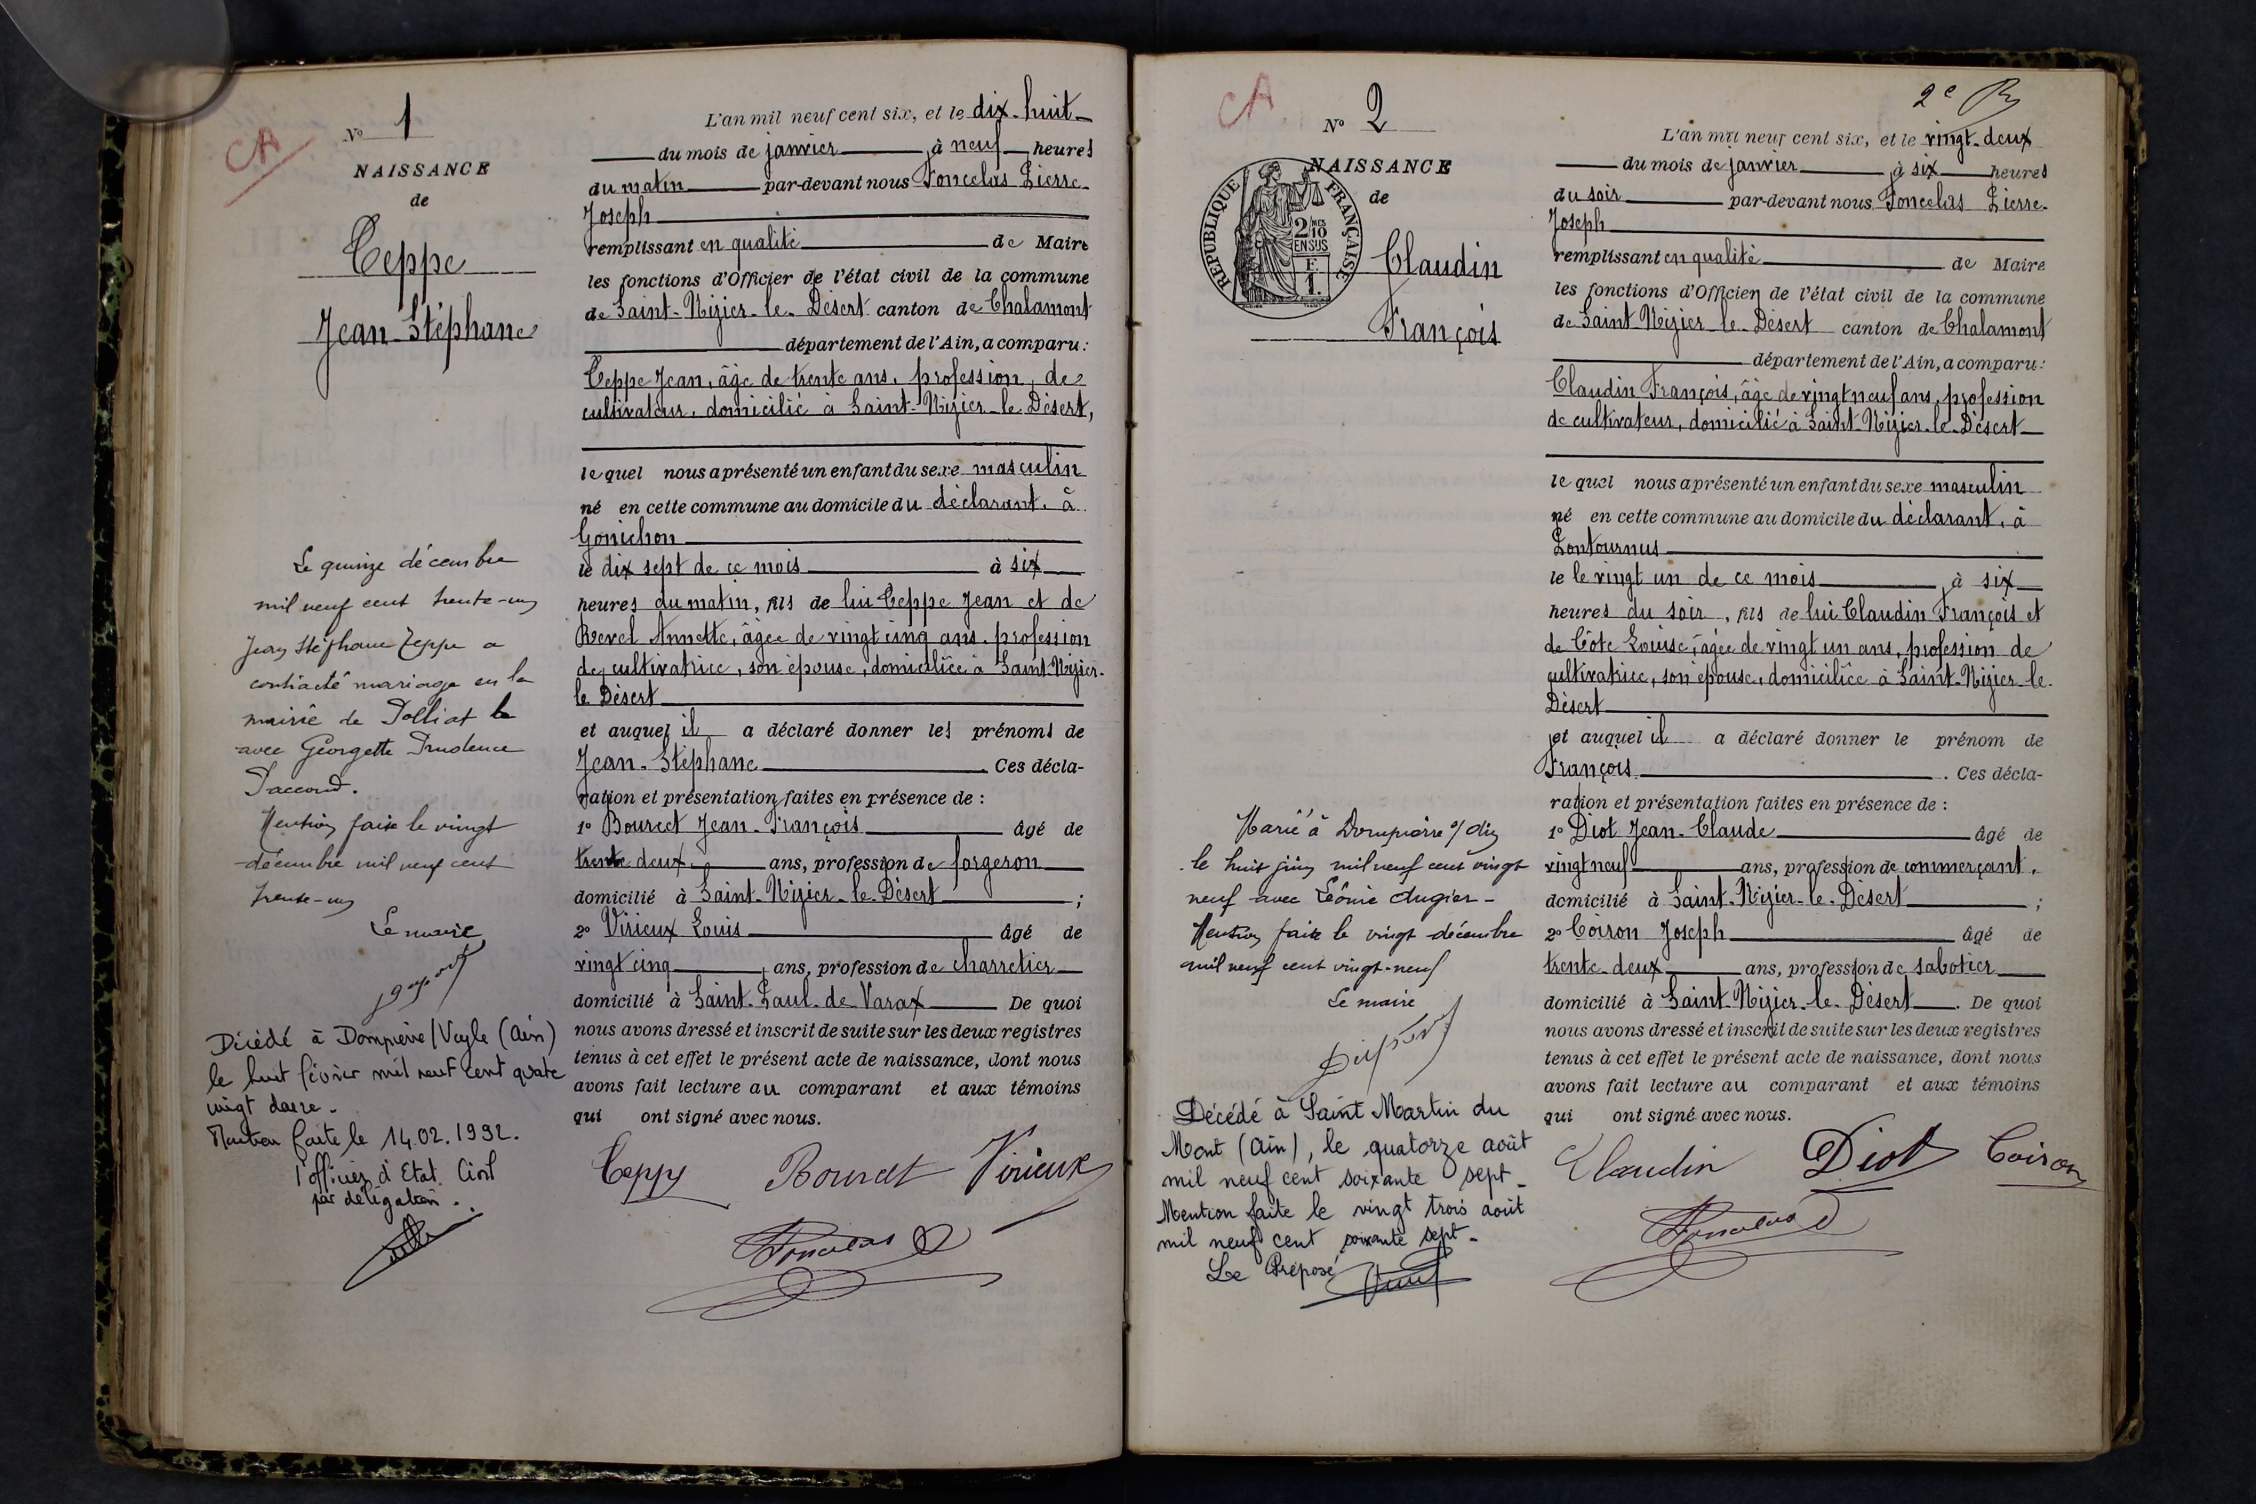 CA
N° 1
NAISSANCE
de
Teppe
Jean-Stéphane
L'an mil neuf cent six, et le dix-huit
du mois de janvier à neuf heures
du matin par-devant nous Foncelas Pierre-
Joseph
remplissant en qualité de Maire
les fonctions d'Officier de l'état civil de la commune
de Saint-Nizier-le-Désert canton de Chalamont
département de l'Ain, a comparu:
Teppe Jean, âgé de trente ans, profession de
cultivateur, domicilié à Saint-Nizier-le-Désert,
lequel nous a présenté un enfant du sexe masculin
né en cette commune au domicile du déclarant, à
Gonichon
le dix sept de ce mois à six
heures du matin, fils de lui Teppe Jean et de
Revel Annette, âgée de vingt cinq ans, profession
de cultivatrice, son épouse, domiciliée à Saint-Nizier-
le Désert
et auquel il a déclaré donner les prénoms de
Jean-Stéphane Ces décla-
ration et présentation faites en présence de :
1° Bourcet Jean-François âgé de
trente deux ans, profession de forgeron
domicilié à Saint-Nizier-le-Désert ;
2° Virieux Louis âgé de
vingt cinq ans, profession de charretier
domicilié à Saint-Paul-de-Varax De quoi
nous avons dressé et inscrit de suite sur les deux registres
tenus à cet effet le présent acte de naissance, dont nous
avons fait lecture au comparant et aux témoins
qui ont signé avec nous.
Teppe Bourcet Virieux
Foncelas
Le quinze décembre
mil neuf cent trente-un
Jean Stéphane Teppe a
contracté mariage en la
mairie de Polliat
avec Georgette Prudence
Paccoud.
Mention faite le vingt
décembre mil neuf cent
trente-un
Le maire
Décédé à Dompierre/Veyle (Ain)
le huit février mil neuf cent quatre
vingt douze.
Mention faite le 14.02.1992.
l'officier d'Etat Civil
par délégation.
CA
N° 2
2e
NAISSANCE
de
REPUBLIQUE FRANÇAISE
2/10
EN SUS
F.
1.
Claudin
François
L'an mil neuf cent six, et le vingt-deux
du mois de janvier à six heures
du soir par-devant nous Foncelas Pierre-
Joseph
remplissant en qualité de Maire
les fonctions d'Officier de l'état civil de la commune
de Saint-Nizier-le-Désert canton de Chalamont
département de l'Ain, a comparu:
Claudin François, âgé de vingt neuf ans, profession
de cultivateur, domicilié à Saint-Nizier-le-Désert
lequel nous a présenté un enfant du sexe masculin
né en cette commune au domicile du déclarant, à
Pontournus
le le vingt un de ce mois à six
heures du soir, fils de lui Claudin François et
de Côte Louise, âgée de vingt un ans, profession de
cultivatrice, son épouse, domiciliée à Saint-Nizier-le-
Désert
et auquel il a déclaré donner le prénom de
François. Ces décla-
ration et présentation faites en présence de :
1° Diot Jean-Claude âgé de
vingt neuf ans, profession de commerçant,
domicilié à Saint-Nizier-le-Désert ;
2° Coiron Joseph âgé de
trente-deux ans, profession de sabotier
domicilié à Saint-Nizier-le-Désert. De quoi
nous avons dressé et inscrit de suite sur les deux registres
tenus à cet effet le présent acte de naissance, dont nous
avons fait lecture au comparant et aux témoins
qui ont signé avec nous.
Claudin Diot Coiron
Foncelas
Marié à Dompierre
le huit juin mil neuf cent vingt
neuf avec Léonie Augier-
Mention faite le vingt décembre
mil neuf cent vingt-neuf
Le maire
Décédé à Saint Martin du
Mont (Ain), le quatorze août
mil neuf cent soixante sept-
Mention faite le vingt trois août
mil neuf cent soixante sept-
Le Préposé